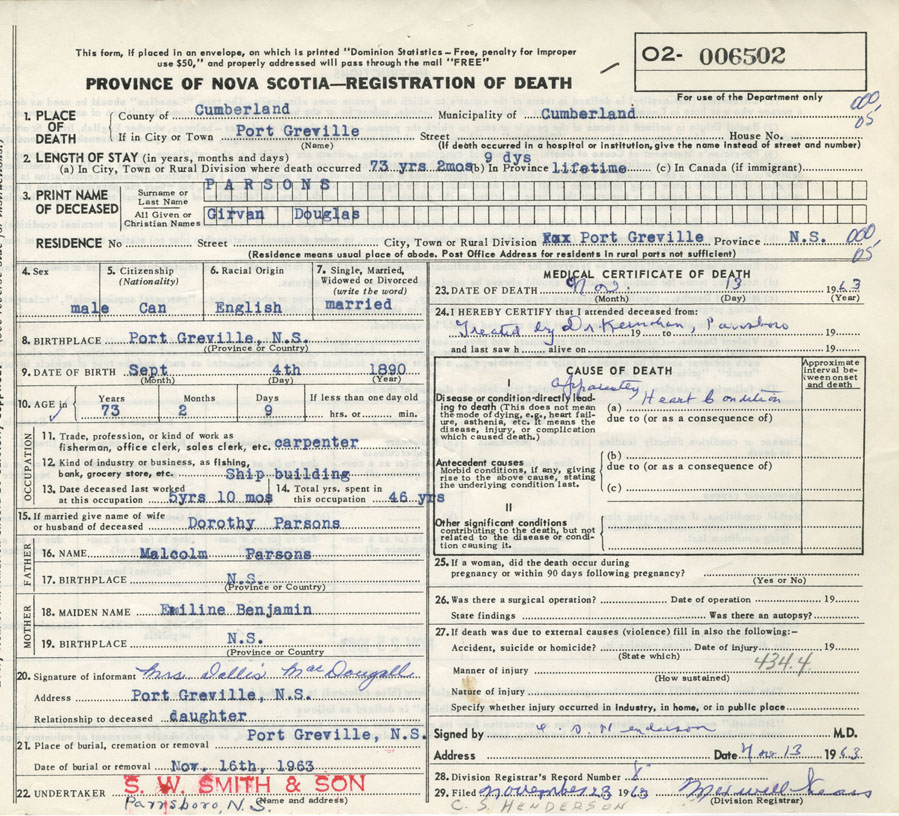 This form, if placed in an envelope, on which is printed "Dominion Statistics – Free, penalty for improper
use $50," and properly addressed will pass through the mail "FREE"
O2- 006502
For use of the Department only
PROVINCE OF NOVA SCOTIA—REGISTRATION OF DEATH
000
05
1. PLACE OF DEATH
County of Cumberland Municipality of Cumberland
If in City or Town Port Greville Street House No.
(Name) (If death occurred in a hospital or institution, give the name instead of street and number)
2. LENGTH OF STAY (in years, months and days)
(a) In City, Town or Rural Division where death occurred 73 yrs 2mos 9 dys (b) In Province lifetime (c) In Canada (if immigrant)
3. PRINT NAME OF DECEASED
Surname or Last Name PARSONS
All Given or Christian Names Girvan Douglas
RESIDENCE No Street City, Town or Rural Division Port Greville Province N.S. 000
05
(Residence means usual place of abode. Post Office Address for residents in rural parts not sufficient)
4. Sex male
5. Citizenship (Nationality) Can
6. Racial Origin English
7. Single, Married, Widowed or Divorced (write the word) married
8. BIRTHPLACE Port Greville, N.S.
(Province or Country)
9. DATE OF BIRTH Sept 4th 1890
(Month) (Day) (Year)
10. AGE in Years 73 Months 2 Days 9 If less than one day old hrs. or min.
OCCUPATION
11. Trade, profession, or kind of work as
fisherman, office clerk, sales clerk, etc. carpenter
12. Kind of industry or business, as fishing,
bank, grocery store, etc. Ship building
13. Date deceased last worked at this occupation 5yrs 10 mos
14. Total yrs. spent in this occupation 46 yrs
15. If married give name of wife
or husband of deceased Dorothy Parsons
FATHER
16. NAME Malcolm Parsons
17. BIRTHPLACE N.S.
(Province or Country)
MOTHER
18. MAIDEN NAME Emiline Benjamin
19. BIRTHPLACE N.S.
(Province or Country)
20. Signature of informant Mrs. Dallis MacDougall
Address Port Greville, N.S.
Relationship to deceased daughter
21. Place of burial, cremation or removal Port Greville, N.S.
Date of burial or removal Nov. 16th, 1963
22. UNDERTAKER S. W. SMITH & SON
Parrsboro, N.S. (Name and address)
MEDICAL CERTIFICATE OF DEATH
23. DATE OF DEATH Nov. 13 1963
(Month) (Day) (Year)
24. I HEREBY CERTIFY that I attended deceased from:
Treated by Dr. Parrsboro 19 to 19
and last saw h alive on 19
CAUSE OF DEATH
Approximate interval between onset and death
I
Disease or condition directly leading to death (This does not mean the mode of dying, e.g., heart failure, asthenia, etc. It means the disease, injury, or complication which caused death.)
Apparently
(a) Heart Condition
due to (or as a consequence of)
Antecedent causes
Morbid conditions, if any, giving rise to the above cause, stating the underlying condition last.
(b)
due to (or as a consequence of)
(c)
II
Other significant conditions
contributing to the death, but not related to the disease or condition causing it.
25. If a woman, did the death occur during
pregnancy or within 90 days following pregnancy?
(Yes or No)
26. Was there a surgical operation? Date of operation 19
State findings Was there an autopsy?
27. If death was due to external causes (violence) fill in also the following:–
Accident, suicide or homicide? Date of injury 19
(State which) 434.4
Manner of injury
(How sustained)
Nature of injury
Specify whether injury occurred in industry, in home, or in public place
Signed by C. S. Henderson M.D.
Address Date Nov 13 1963
28. Division Registrar's Record Number 8
29. Filed November 23 1963 Maxwell
C. S. HENDERSON (Division Registrar)